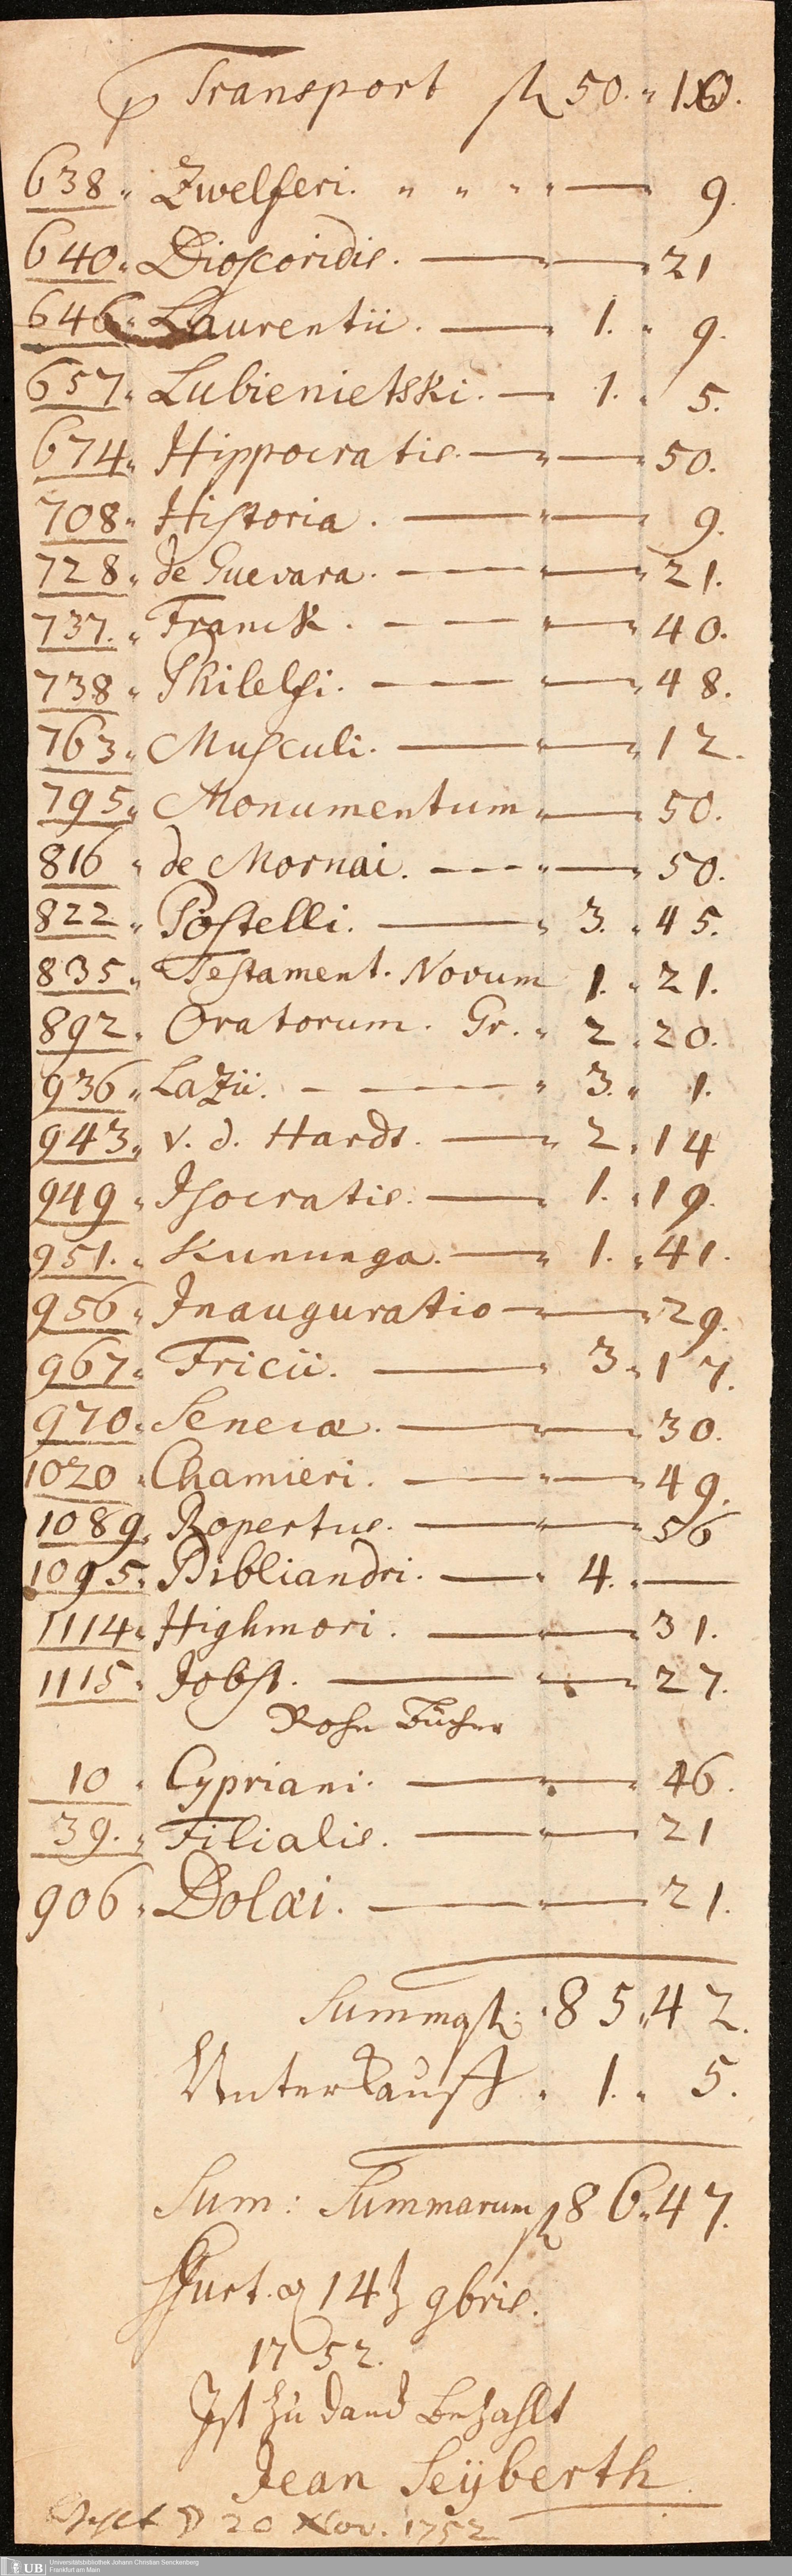 p Transport fl 50. " 10.
638. " Zwelferi. " " " " — " 9.
640. " Dioscoridis. — " — " 21
646. " Laurentii. — " 1. " 9.
657. " Lubienietski. — " 1. " 5.
674. " Hippocratis. — " — " 50.
708. " Historia. — " — " 9.
728. " de Guevara. — " — " 21.
737. " Franck. — " — " 40.
738 " Philelfi. — " — " 48.
763. " Musculi. — " — " 12.
795. " Monumentum " — " 50.
816 " de Mornai. — " — " 50.
822 " Postelli. — " 3. " 45.
835. " Testament. Novum 1. " 21.
892. " Oratorum. Gr. " 2 " 20.
936 " Lazii. — " 3. " 1.
943. " v. d. Hardt. — " 2 " 14
949 " Isocratis. — " 1. " 19.
951. " Kununga. — " 1. " 41.
956 " Inauguratio — " — " 29.
967. " Fricii. — " 3 " 17.
970. " Senecæ. — " — " 30.
1020 " Chamieri. — " — " 49.
1089. " Ropertus. — " — " 56
1095. " Bibliandri. — " 4. " —
1114. " Highmori. — " — " 31.
1115 " Jobst. — " — " 27.
Rohe Bücher
10 " Cypriani. — " — " 46.
39. " Filialis. — " — " 21
906 " Dolæi. — " — " 21.
Summa fl. " 85 " 42.
Unterkauff " 1. " 5.
Sum: Summarum fl 86 " 47.
Ffurt. d 14t 9bris.
1752.
Ist zu danck bezahlt
Jean Seÿberth
20 Nov. 1752
UB Universitätsbibliothek Johann Christian Senckenberg
Frankfurt am Main